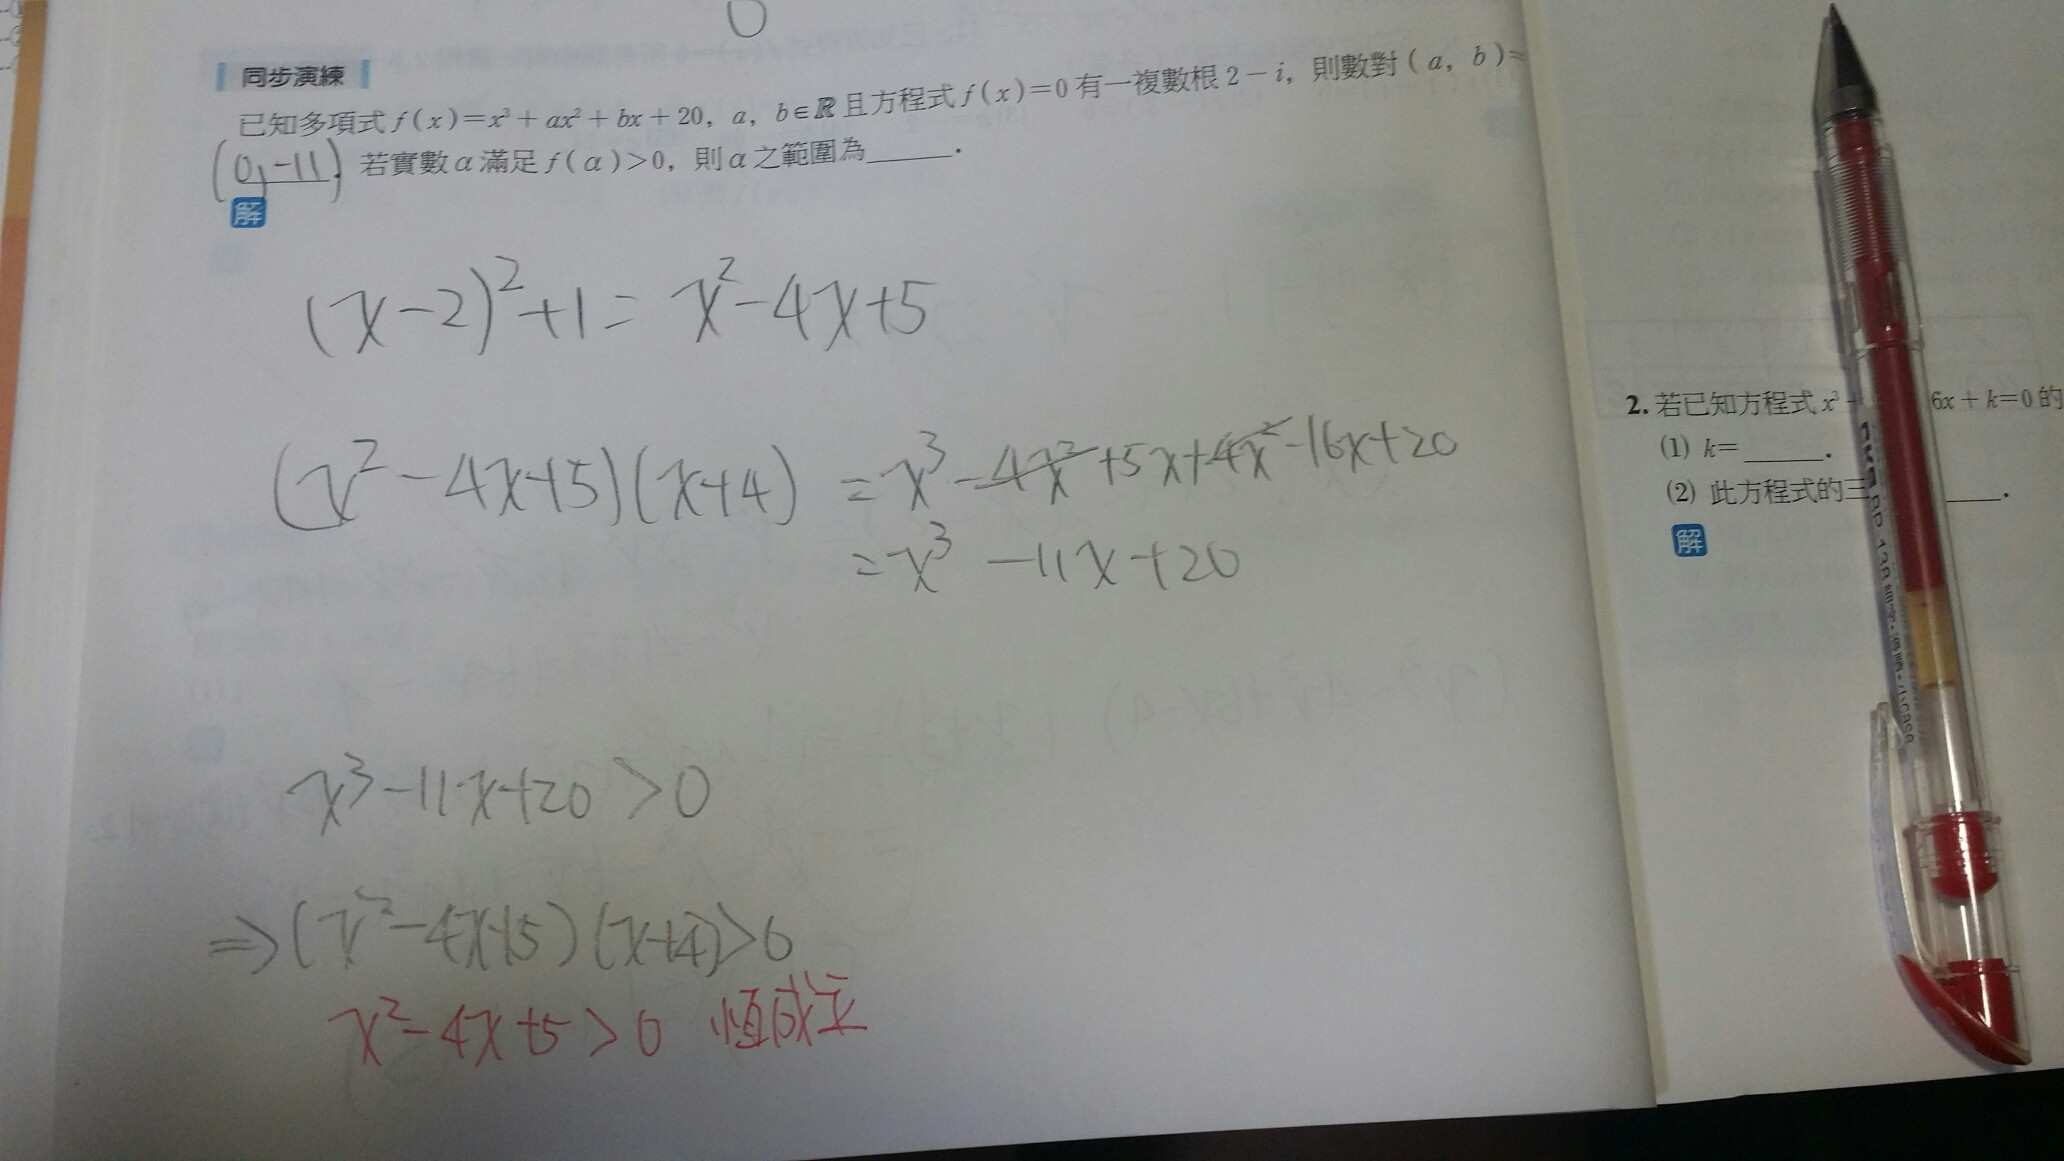 0
同步演練
已知多項式 f(x)=x³+ax²+bx+20, a, b∈ℝ且方程式 f(x)=0有一複數根 2-i, 則數對(a, b)=
(0,-11). 若實數α滿足 f(α)>0, 則α之範圍為______.
解
(x-2)²+1= x²-4x+5
(x²-4x+5)(x+4) =x³-4x²+5x+4x²-16x+20
=x³ -11x+20
x³-11x+20>0
⇒(x²-4x+5)(x+4)>0
x²-4x+5>0 恆成立
2. 若已知方程式 x³- 6x+k=0的
(1) k=______.
(2) 此方程式的三 ____.
解